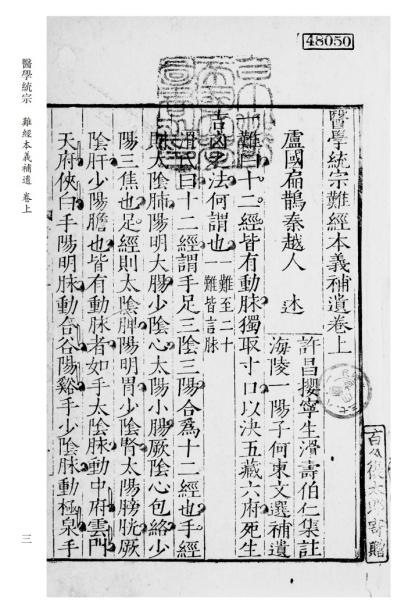 48050
醫學統宗難經本義補遺卷上
盧國扁鵲秦越人 述
許昌攖寧生滑壽伯仁集註
海陵一陽子何柬文選補遺
難曰十二經皆有動脉獨取寸口以決五藏六府死生
吉凶之法何謂也 一難至二十
難皆言脉
滑氏曰十二經謂手足三陰三陽合爲十二經也手經
則太陰肺陽明大腸少陰心太陽小腸厥陰心包絡少
陽三焦也足經則太陰脾陽明胃少陰腎太陽膀胱厥
陰肝少陽膽也皆有動脉者如手太陰脉動中府雲門
天府俠白手陽明脉動合谷陽谿手少陰脉動極泉手
醫學統宗 難經本義補遺 卷上
三